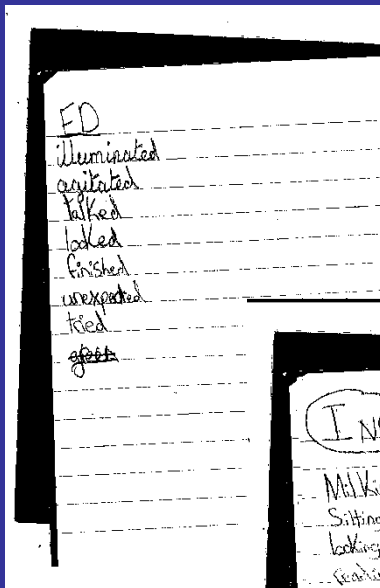 ED
illuminated
agitated
talked
looked
finished
unexpected
tried
Sitting
looking